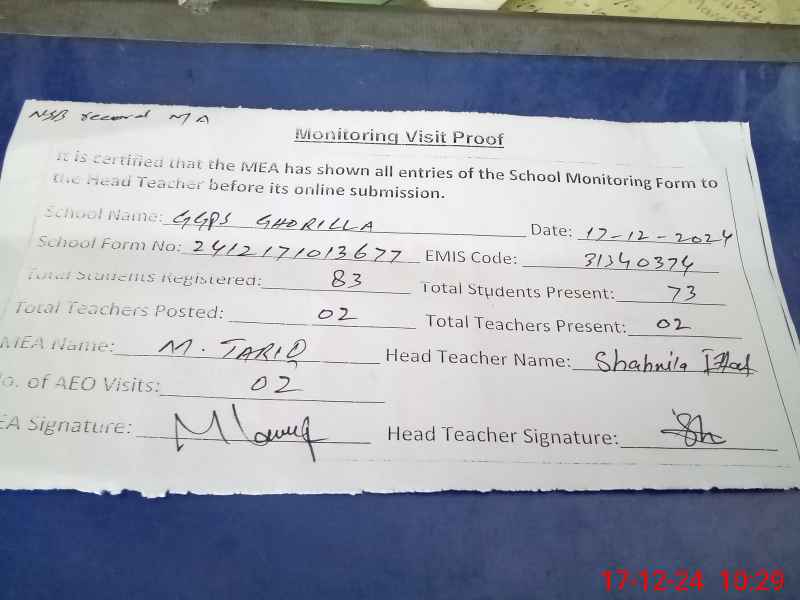 NSB record MA
Monitoring Visit Proof
It is certified that the MEA has shown all entries of the School Monitoring Form to
the Head Teacher before its online submission.
School Name: GGPS GHORILLA Date: 17-12-2024
School Form No: 2412171013677 EMIS Code: 31340374
Total Students Registered: 83 Total Students Present: 73
Total Teachers Posted: 02 Total Teachers Present: 02
MEA Name: M. TARIQ Head Teacher Name: Shahnila
No. of AEO Visits: 02
EA Signature: Head Teacher Signature:
17-12-24 10:29